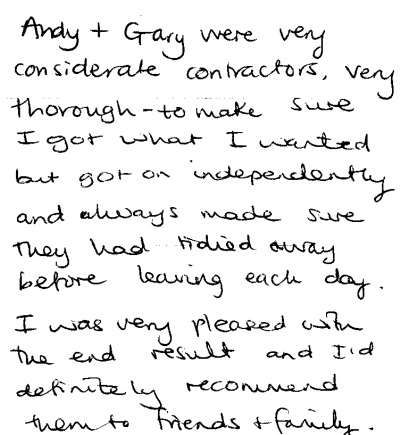 Andy + Gary were very
considerate contractors, very
thorough - to make sure
I got what I wanted
but got on independently
and always made sure
they had tidied away
before leaving each day.
I was very pleased with
the end result and I'd
definitely recommend
them to friends + family.